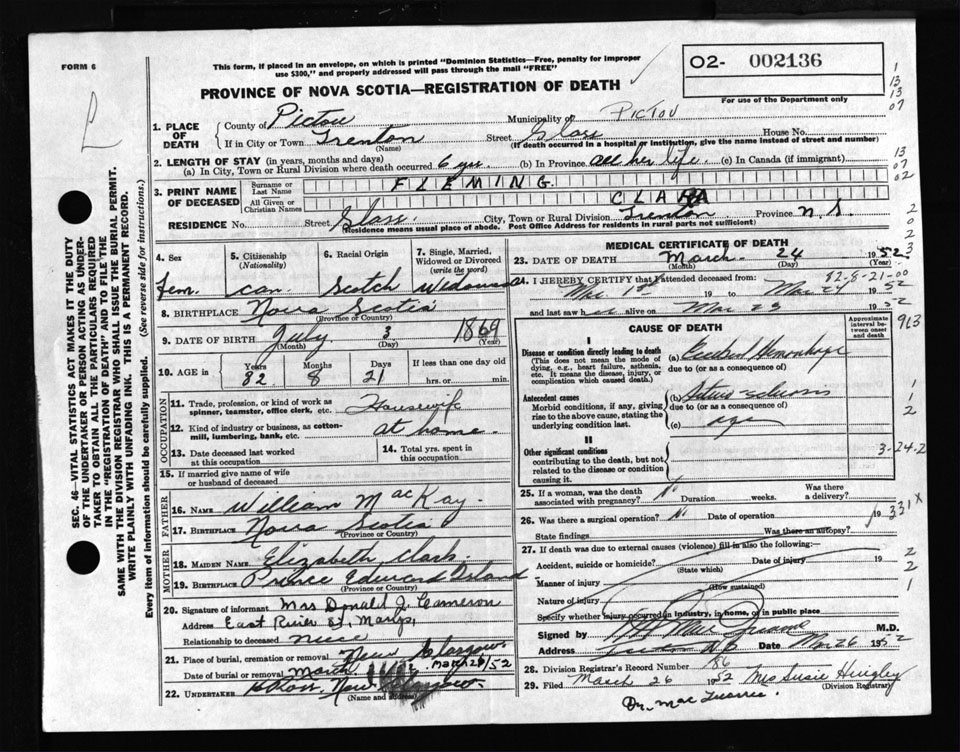 FORM 6
L
This form, if placed in an envelope, on which is printed "Dominion Statistics—Free, penalty for improper
use $300," and properly addressed will pass through the mail "FREE"
O2- 002136
For use of the Department only
PROVINCE OF NOVA SCOTIA—REGISTRATION OF DEATH
1
13
13
07
13
07
02
2
0
2
3
SEC. 46—VITAL STATISTICS ACT MAKES IT THE DUTY
OF THE UNDERTAKER OR PERSON ACTING AS UNDER-
TAKER TO OBTAIN ALL THE PARTICULARS REQUIRED
IN THE "REGISTRATION OF DEATH" AND TO FILE THE
SAME WITH THE DIVISION REGISTRAR WHO SHALL ISSUE THE BURIAL PERMIT.
WRITE PLAINLY WITH UNFADING INK. THIS IS A PERMANENT RECORD.
Every item of information should be carefully supplied. (See reverse side for instructions.)
1. PLACE OF DEATH
County of Pictou Municipality of PICTOU
If in City or Town Trenton (Name) Street Glass House No.
(If death occurred in a hospital or institution, give the name instead of street and number)
2. LENGTH OF STAY (in years, months and days)
(a) In City, Town or Rural Division where death occurred 6 yrs. (b) In Province all her life. (c) In Canada (if immigrant)
3. PRINT NAME OF DECEASED
Surname or Last Name FLEMING.
All Given or Christian Names CLARA
RESIDENCE No. Street Glass. City, Town or Rural Division Trenton Province N.S.
(Residence means usual place of abode. Post Office Address for residents in rural parts not sufficient)
4. Sex
Fem.
5. Citizenship (Nationality)
Can.
6. Racial Origin
Scotch
7. Single, Married, Widowed or Divorced (write the word)
Widowed
8. BIRTHPLACE Nova Scotia
(Province or Country)
9. DATE OF BIRTH July 3 1869
(Month) (Day) (Year)
10. AGE in Years 82 Months 8 Days 21 If less than one day old hrs. or min.
OCCUPATION
11. Trade, profession, or kind of work as spinner, teamster, office clerk, etc. Housewife
12. Kind of industry or business, as cotton-mill, lumbering, bank, etc. at home.
13. Date deceased last worked at this occupation
14. Total yrs. spent in this occupation
15. If married give name of wife or husband of deceased
FATHER
16. NAME William MacKay.
17. BIRTHPLACE Nova Scotia
(Province or Country)
MOTHER
18. MAIDEN NAME Elizabeth Clark.
19. BIRTHPLACE Prince Edward Island
(Province or Country)
20. Signature of informant Mrs Donald J. Cameron
Address East River St. Marys,
Relationship to deceased niece
21. Place of burial, cremation or removal New Glasgow.
Date of burial or removal March 26/52
22. UNDERTAKER New Glasgow.
(Name and address)
MEDICAL CERTIFICATE OF DEATH
23. DATE OF DEATH March 24 1952
(Month) (Day) (Year)
82-8-21-00
24. I HEREBY CERTIFY that I attended deceased from:
Mar. 1st 19 to Mar 24 1952
and last saw her alive on Mar 23 1952
CAUSE OF DEATH
Approximate interval between onset and death
I
Disease or condition directly leading to death
(This does not mean the mode of dying, e.g., heart failure, asthenia, etc. It means the disease, injury, or complication which caused death.)
(a) Cerebral Hemorrhage
due to (or as a consequence of)
Antecedent causes
Morbid conditions, if any, giving rise to the above cause, stating the underlying condition last.
(b)
due to (or as a consequence of)
(c) age
II
Other significant conditions
contributing to the death, but not related to the disease or condition causing it.
913
1
1
2
3-24-2
25. If a woman, was the death associated with pregnancy? No Duration weeks. Was there a delivery?
26. Was there a surgical operation? No Date of operation 19
State findings Was there an autopsy?
331 X
27. If death was due to external causes (violence) fill in also the following:—
Accident, suicide or homicide? Date of injury 19
(State which)
Manner of injury
(How sustained)
Nature of injury
Specify whether injury occurred in industry, in home, or in public place
2
2
1
Signed by M.D.
Address Date Mar 26 1952
28. Division Registrar's Record Number 86
29. Filed March 26 1952 Mrs Susie Hingley
(Division Registrar)
Dr. Mac